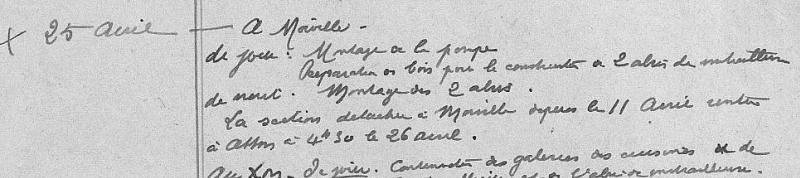 x 25 avril — A Morville -
de jour : Montage de la pompe
Préparation de bois pour la construction de 2 abris de mitrailleuse
de nuit. Montage des 2 abris.
La section détachée à Morville depuis le 11 Avril rentre
à Atton à 4h30 le 26 avril.
de jour. Continuation des galeries des cuisines et de
l'abri de mitrailleuse.